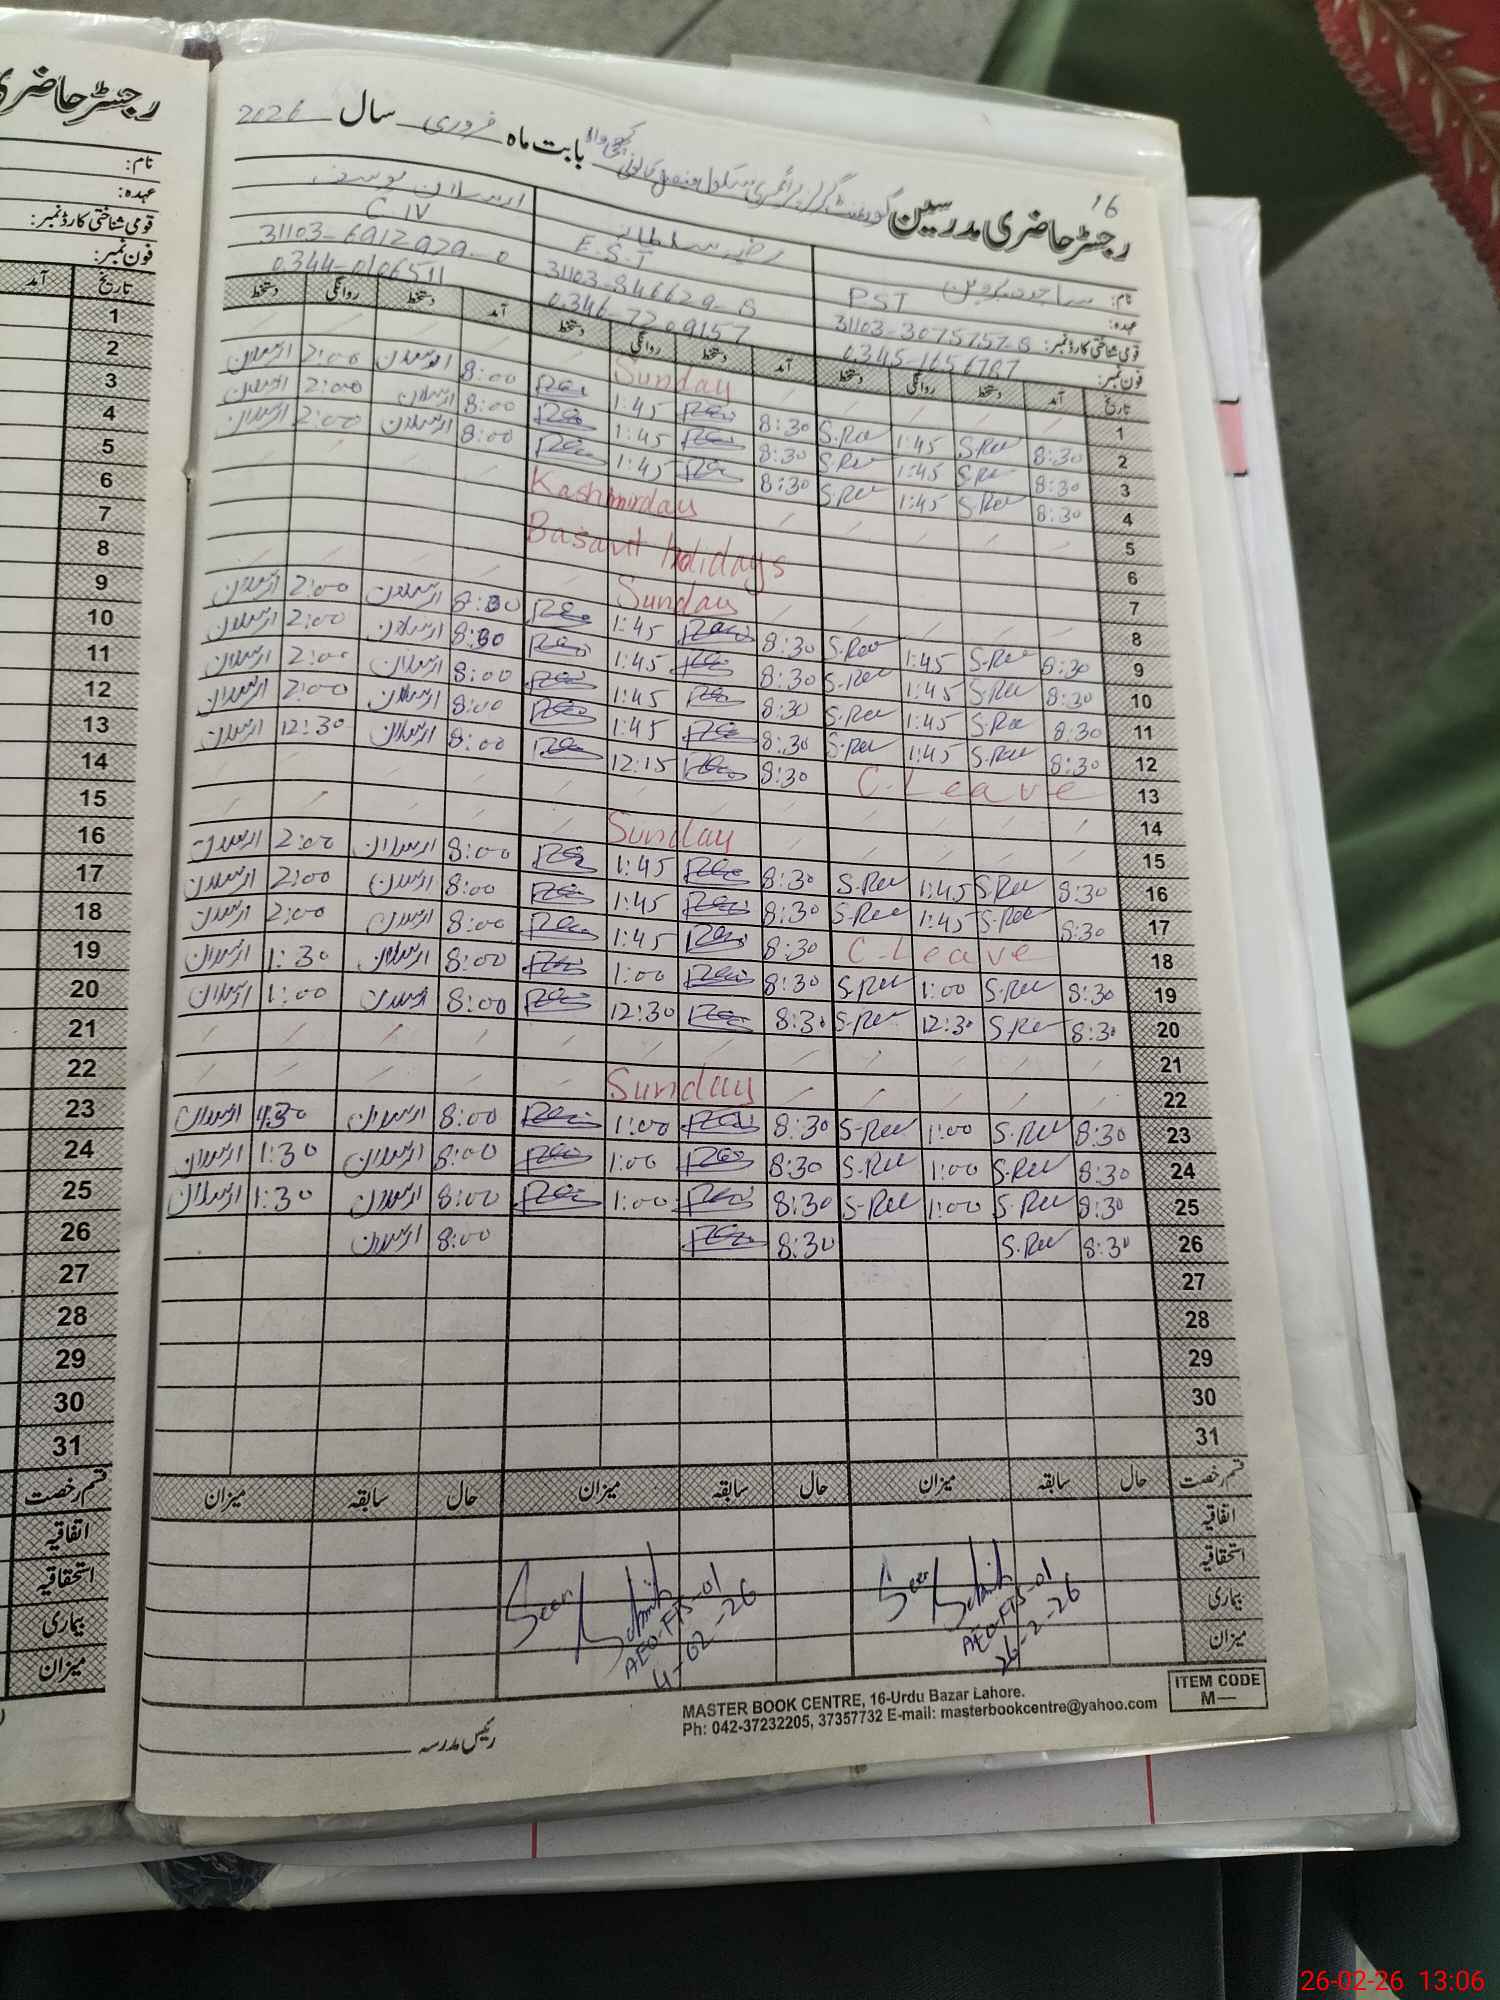 رجسٹر حاضری
نام:
عہدہ:
قومی شناختی کارڈ نمبر:
فون نمبر:
آمد تاریخ
1
2
3
4
5
6
7
8
9
10
11
12
13
14
15
16
17
18
19
20
21
22
23
24
25
26
27
28
29
30
31
قسم رخصت
اتفاقیہ
استحقاقیہ
بیماری
میزان
16
رجسٹر حاضری مدرسین گورنمنٹ گرلز پرائمری سکول بابت ماہ فروری سال 2026
نام: ساجدہ پروین
عہدہ: PST
قومی شناختی کارڈ نمبر: 31103-3075757-8
فون نمبر: 0345-1656787
رضیہ سلطانہ
E.S.T
31103-846629-8
0346-7209157
ارسلان یوسف
C-IV
31103-6912929-0
0344-0106511
تاریخ آمد دستخط روانگی دستخط آمد دستخط روانگی دستخط آمد دستخط روانگی دستخط
1 Sunday
2 8:30 S.Rev 1:45 S.Rev 8:30 1:45 8:00 ارسلان 2:00 ارسلان
3 8:30 S.Rev 1:45 S.Rev 8:30 1:45 8:00 ارسلان 2:00 ارسلان
4 8:30 S.Rev 1:45 S.Rev 8:30 1:45 8:00 ارسلان 2:00 ارسلان
5 Kashmirday
6 Basant holidays
7
8 Sunday
9 8:30 S.Rev 1:45 S.Rev 8:30 1:45 8:30 ارسلان 2:00 ارسلان
10 8:30 S.Rev 1:45 S.Rev 8:30 1:45 8:30 ارسلان 2:00 ارسلان
11 8:30 S.Rev 1:45 S.Rev 8:30 1:45 8:00 ارسلان 2:00 ارسلان
12 8:30 S.Rev 1:45 S.Rev 8:30 1:45 8:00 ارسلان 2:00 ارسلان
13 C.Leave 8:30 12:15 8:00 ارسلان 12:30 ارسلان
14
15 Sunday
16 8:30 S.Rev 1:45 S.Rev 8:30 1:45 8:00 ارسلان 2:00 ارسلان
17 8:30 S.Rev 1:45 S.Rev 8:30 1:45 8:00 ارسلان 2:00 ارسلان
18 C.Leave 8:30 1:45 8:00 ارسلان 2:00 ارسلان
19 8:30 S.Rev 1:00 S.Rev 8:30 1:00 8:00 ارسلان 1:30 ارسلان
20 8:30 S.Rev 12:30 S.Rev 8:30 12:30 8:00 ارسلان 1:00 ارسلان
21
22 Sunday
23 8:30 S.Rev 1:00 S.Rev 8:30 1:00 8:00 ارسلان 1:30 ارسلان
24 8:30 S.Rev 1:00 S.Rev 8:30 1:00 8:00 ارسلان 1:30 ارسلان
25 8:30 S-Rev 1:00 S-Rev 8:30 1:00 8:00 ارسلان 1:30 ارسلان
26 8:30 S.Rev 8:30 8:00 ارسلان
27
28
29
30
31
قسم رخصت حال سابقہ میزان حال سابقہ میزان حال سابقہ میزان
اتفاقیہ
استحقاقیہ
بیماری
میزان
Seen
AEO-FTS-01
26-2-26
Seen
AEO-FTS-01
4-02-26
MASTER BOOK CENTRE, 16-Urdu Bazar Lahore.
Ph: 042-37232205, 37357732 E-mail: masterbookcentre@yahoo.com
ITEM CODE
M—
رئیس مدرسہ
26-02-26 13:06